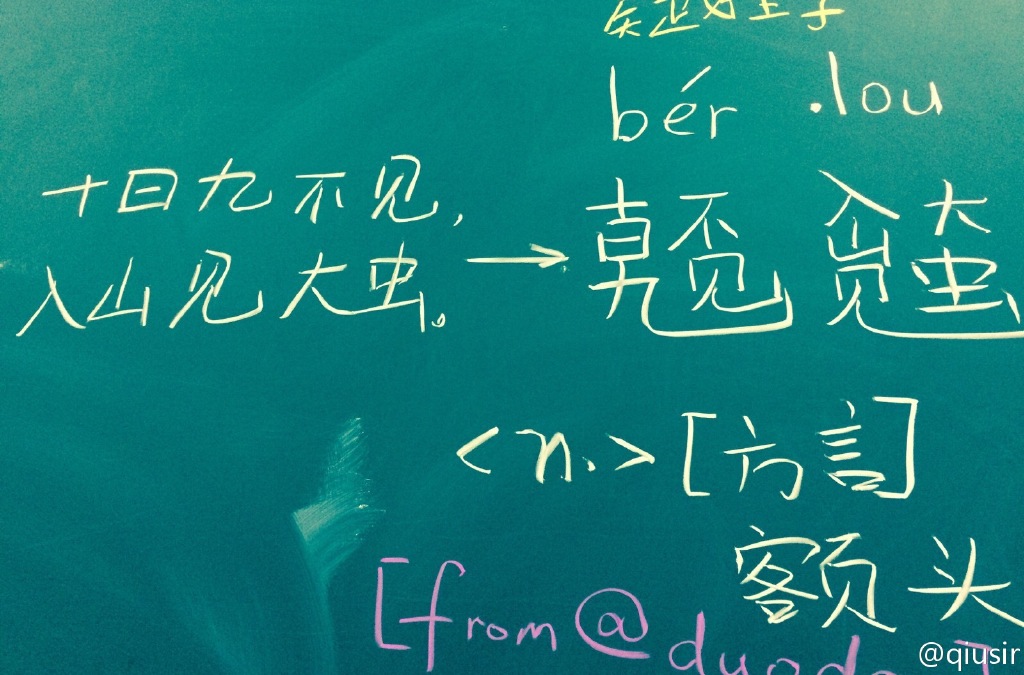 bér .lou
十日九不见,
入山见大虫。→
<n.>[方言]
额头
[from@
@qiusir